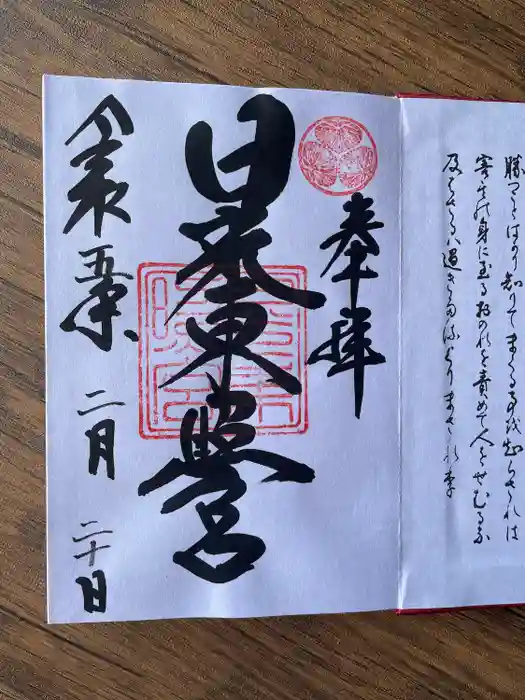 勝つことはかり知りてまくる事を知らされは
害其の身に至るおのれを責めて人をせむるな
及はさるハ過きたるよりまされり
奉拝
日光東照宮
令和五年
二月
二十日